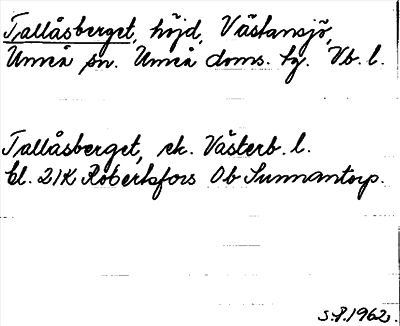 Tallåsberget, höjd, Västansjö,
Umeå sn. Umeå doms. tg. Vb. l.
Tallåsberget, ek. Västerb. l.
bl. 21K Robertsfors Ob Sunnantorp.
S.P. 1962.